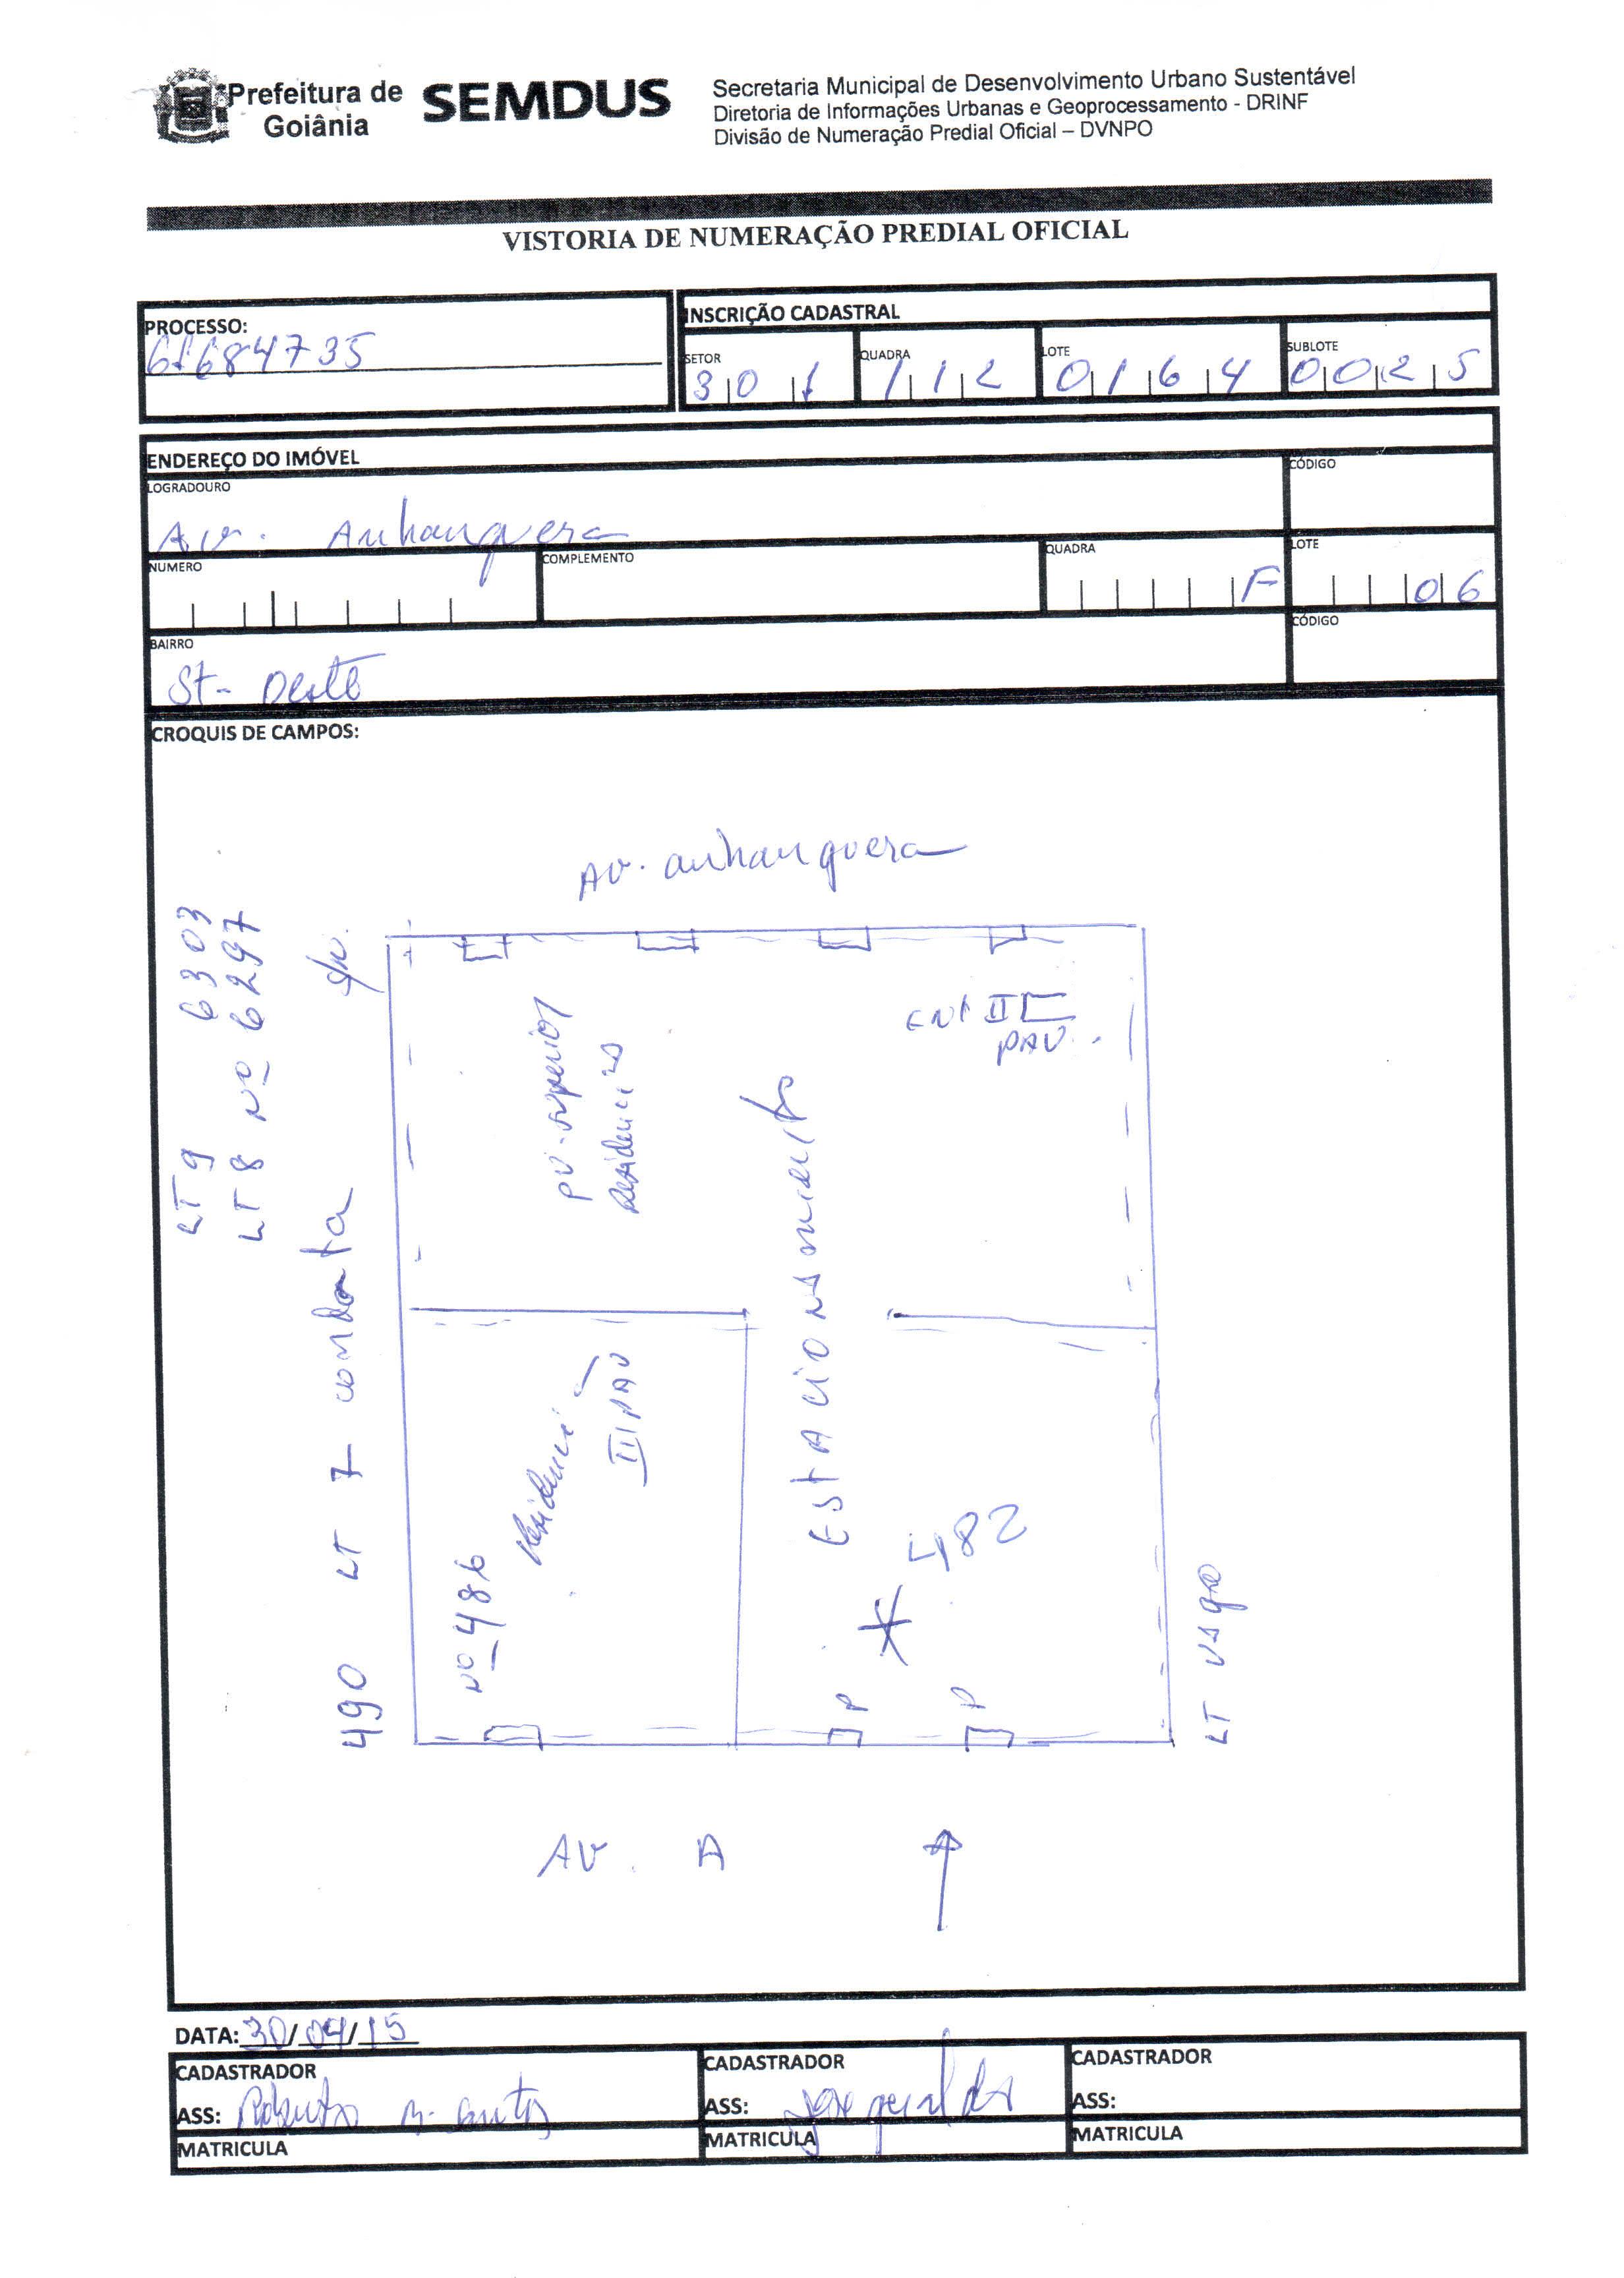 Prefeitura de Goiânia
SEMDUS
Secretaria Municipal de Desenvolvimento Urbano Sustentável
Diretoria de Informações Urbanas e Geoprocessamento - DRINF
Divisão de Numeração Predial Oficial – DVNPO
VISTORIA DE NUMERAÇÃO PREDIAL OFICIAL
PROCESSO:
61684735
INSCRIÇÃO CADASTRAL
SETOR
301
QUADRA
112
LOTE
0164
SUBLOTE
0025
ENDEREÇO DO IMÓVEL
LOGRADOURO
Av. Anhanguera
CÓDIGO
NUMERO
COMPLEMENTO
QUADRA
F
LOTE
06
BAIRRO
St- Oeste
CÓDIGO
CROQUIS DE CAMPOS:
AV. anhanguera
LT 9 6303
LT 8 Nº 6297
490 LT 7
PV-superior
Residencias
ENT II
PAV.
Estacionamento
Residenci
III PAV
Nº 486
482
P
P
LT vago
AV. A
DATA: 30/04/15
CADASTRADOR
ASS: Roberto M. Santos
MATRICULA
CADASTRADOR
ASS: Jose geraldo
MATRICULA
CADASTRADOR
ASS:
MATRICULA